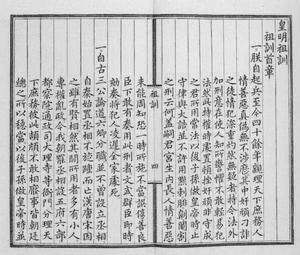 皇明祖訓
祖訓首章
一朕自起兵至今四十餘年親理天下庶務人
情善惡真偽無不涉歷其中奸頑刁詐
之徒情犯深重灼然無疑者特令法外
加刑意在使人知所警懼不敢輕易犯
法然此特權時處置頓挫奸頑非守成
之君所用常法以後子孫做皇帝時止
守律與大誥並不許用黥刺腓劓閹割
之刑云何蓋嗣君宮生內長人情善惡
祖訓 四
未能周知恐一時所施不當誤傷善良
臣下敢有奏用此刑者文武群臣即時
劾奏將犯人凌遲全家處死
一自古三公論道六卿分職並不曾設立丞相
自秦始置丞相不旋踵而亡漢唐宋因
之雖有賢相然其間所用者多有小人
專權亂政今我朝罷丞相設五府六部
都察院通政司大理寺等衙門分理天
下庶務彼此頡頏不敢相壓事皆朝廷
總之所以穩當以後子孫做皇帝時並